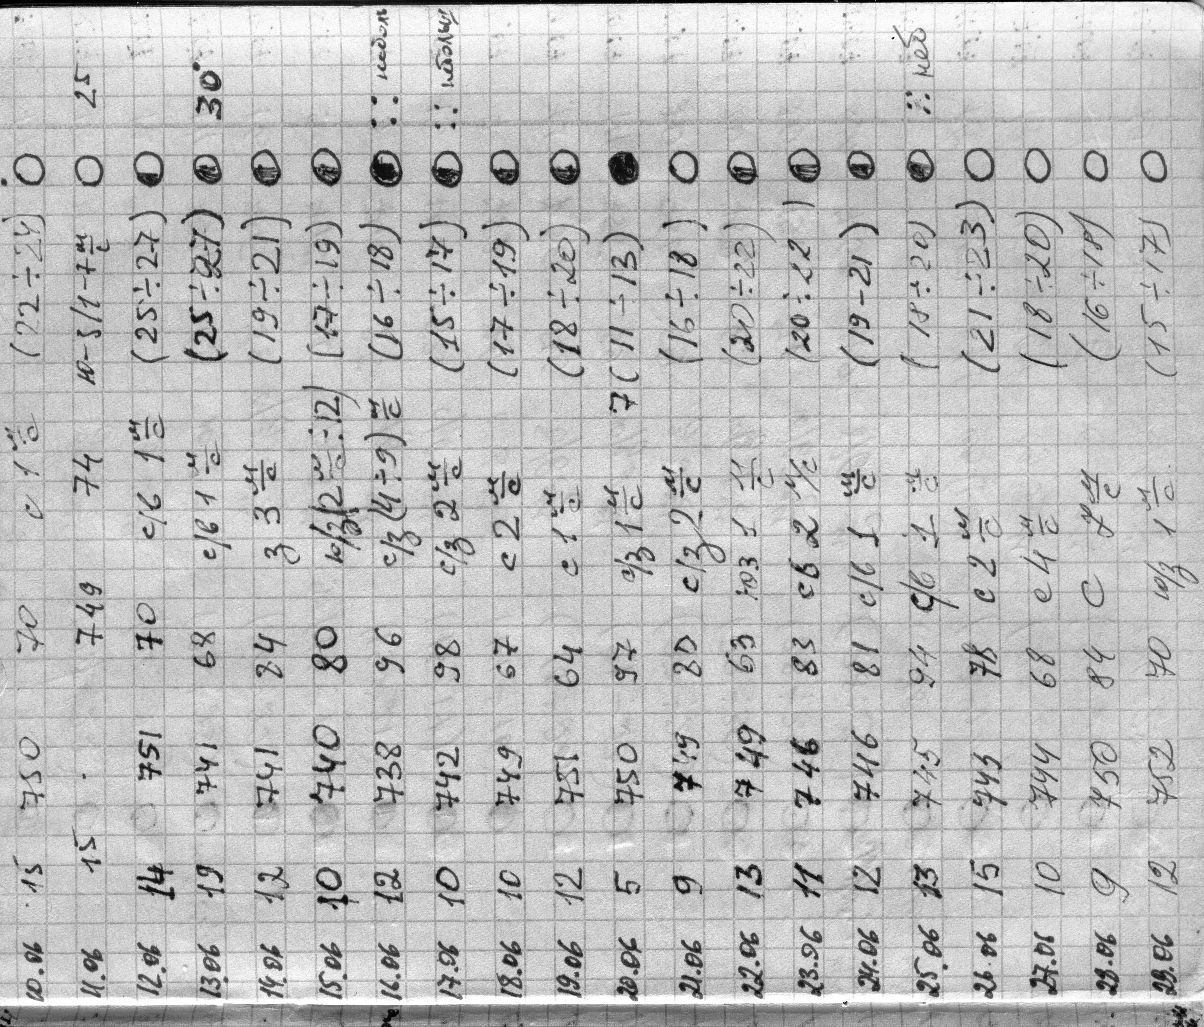 10.06 15 750 70 с 1 м/с (22÷24)
11.06 15 749 74 ю-з/1-7 м/с 25
12.06 14 751 70 с/в 1 м/с (25÷27)
13.06 19 741 68 с/в 1 м/с (25÷27) 30°
14.06 12 741 84 з 3 м/с (19÷21)
15.06 10 740 80 ю/з (2 м/с ÷12) (17÷19)
16.06 12 738 96 с/з (4÷9) м/с (16÷18) неболь
17.06 10 742 98 с/з 2 м/с (15÷17) небольш
18.06 10 749 67 с 2 м/с (17÷19)
19.06 12 751 64 с 1 м/с (18÷20)
20.06 5 750 97 с/з 1 м/с 7 (11÷13)
21.06 9 749 80 с/з 2 м/с (16÷18)
22.06 13 749 63 юз 1 м/с (20÷22)
23.06 11 746 83 св 2 м/с (20÷22)
24.06 12 746 81 с/в 1 м/с (19-21)
25.06 13 745 94 с/в 1 м/с (18÷20) :: неб
26.06 15 745 78 с 2 м/с (21÷23)
27.06 10 744 68 с 4 м/с (18÷20)
28.06 9 750 84 с м/с (16÷18)
29.06 12 752 70 ю/з 1 м/с (15÷17)